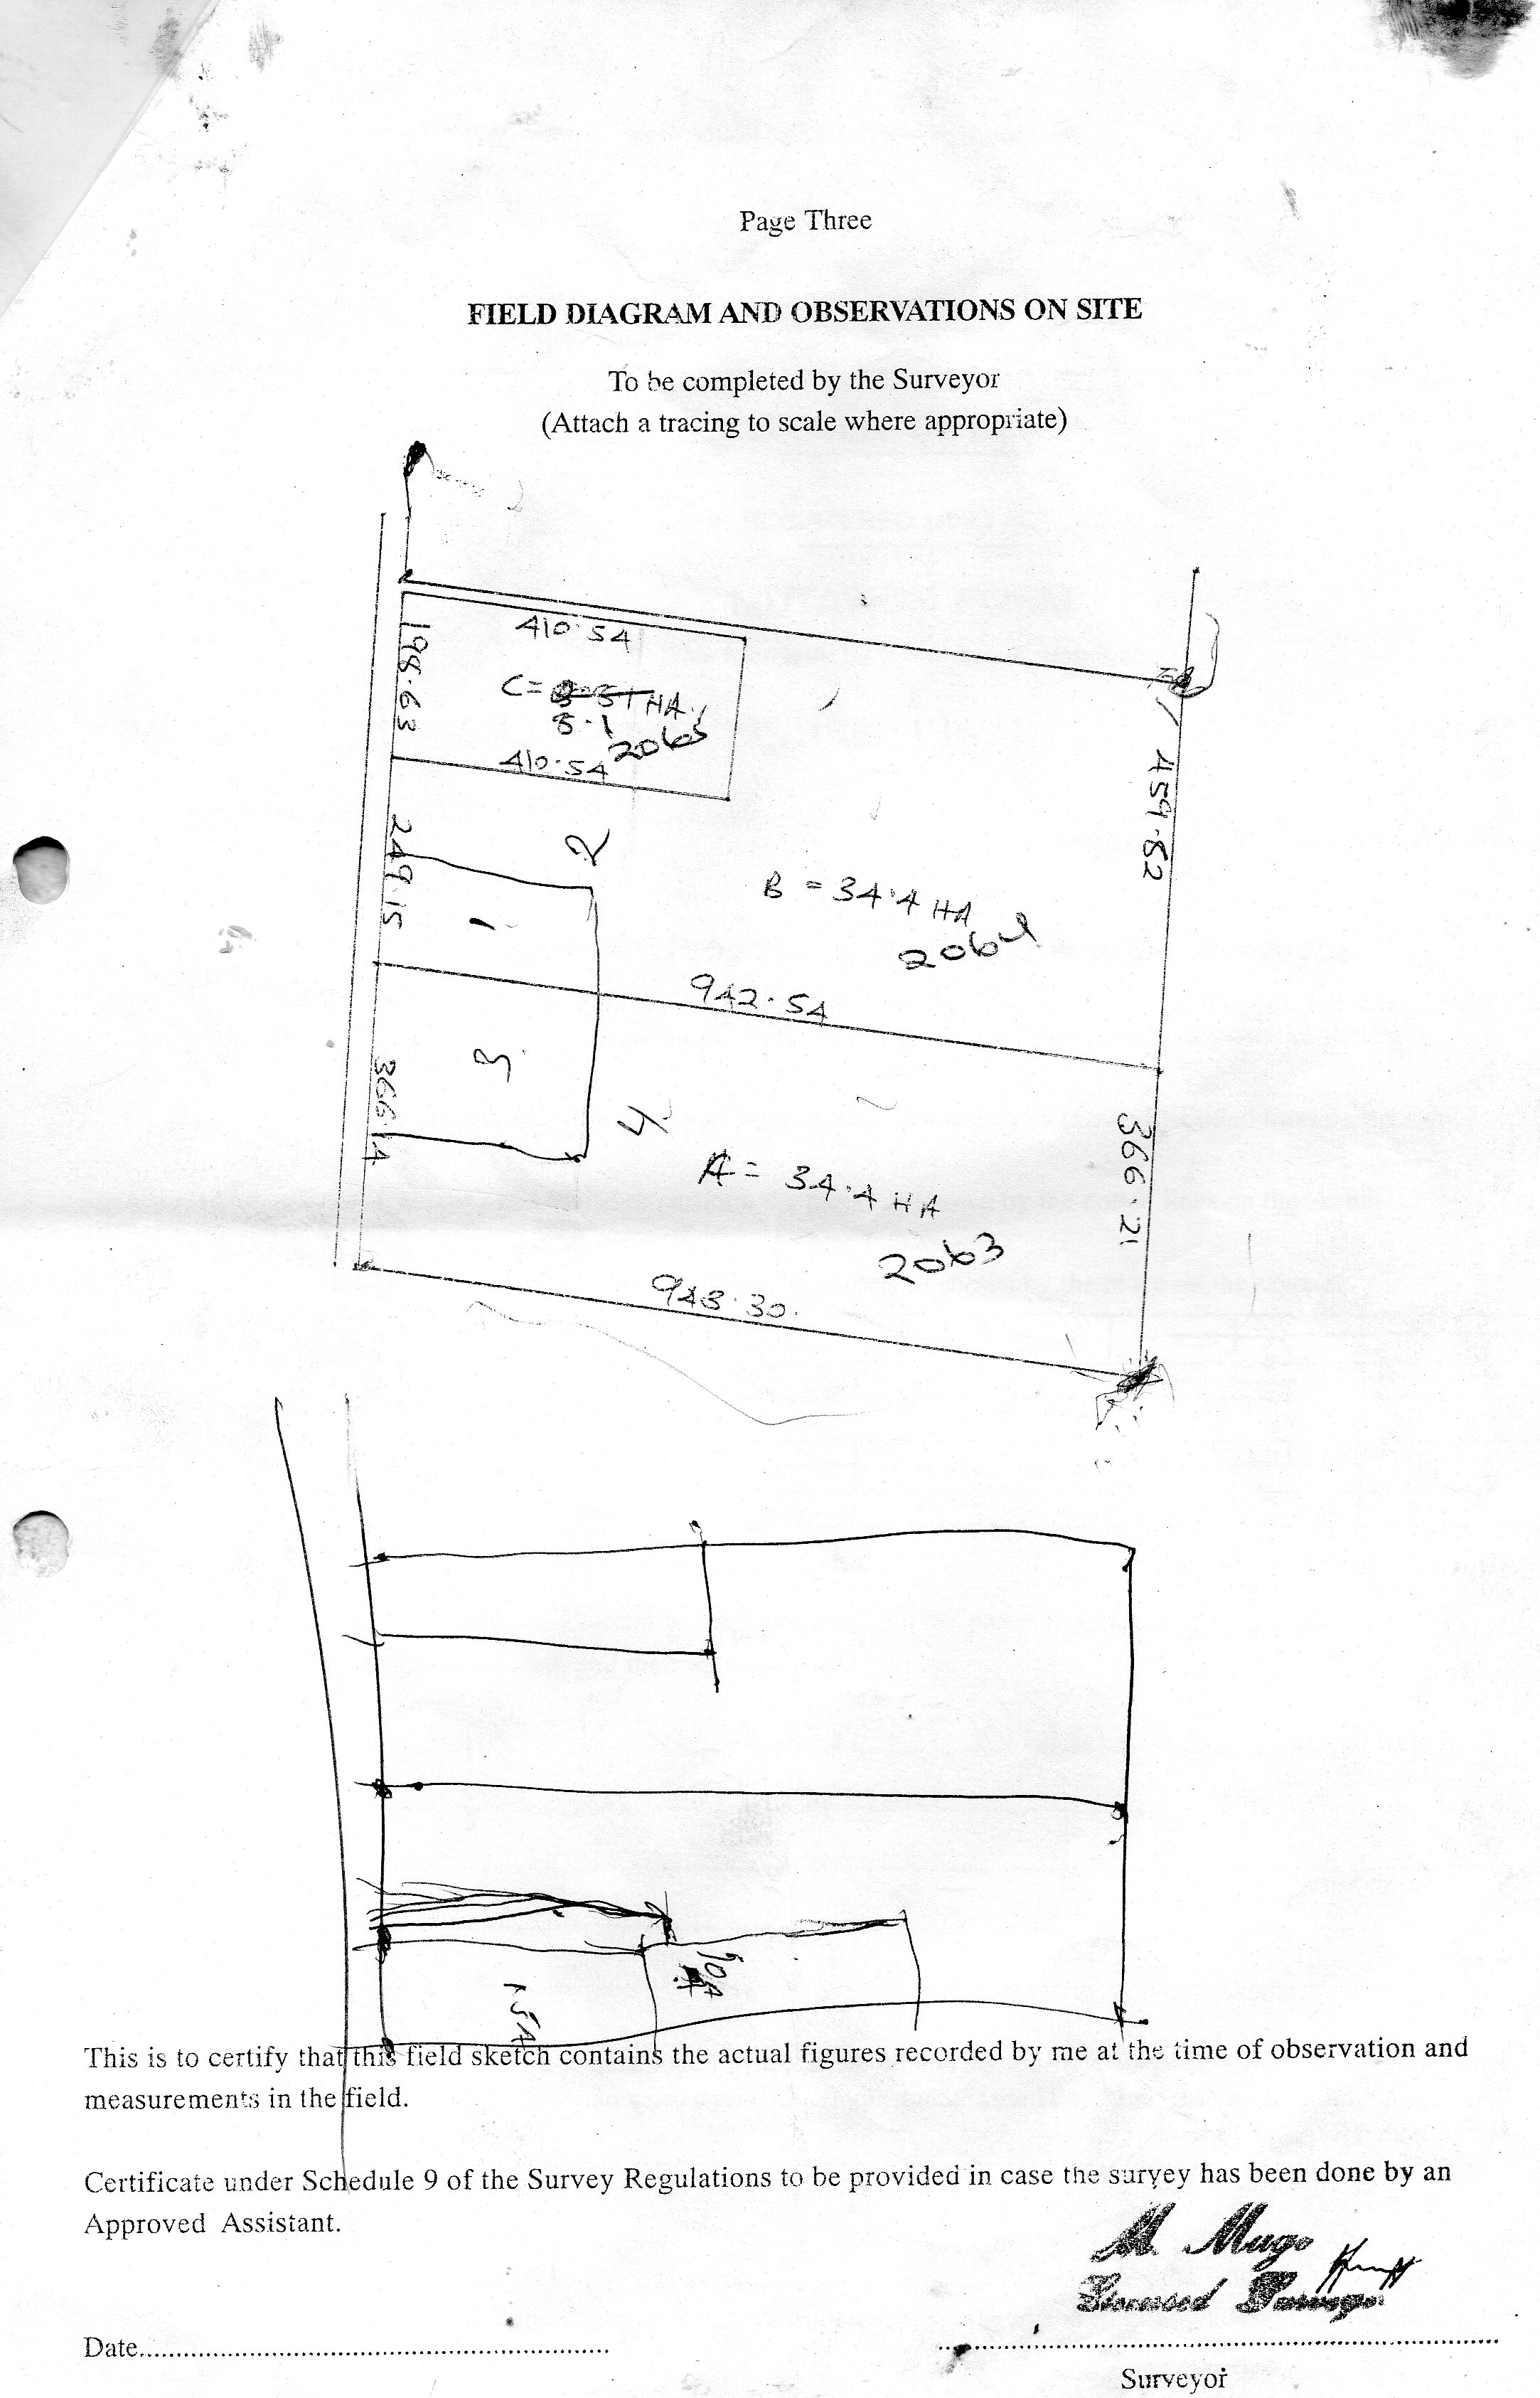 Page Three
FIELD DIAGRAM AND OBSERVATIONS ON SITE
To be completed by the Surveyor
(Attach a tracing to scale where appropriate)
410.54
198.63
C=
HA
8.1
2065
410.54
459.82
249.15
2
1
B = 34.4 HA
2064
942.54
3
366.14
4
366.21
A = 34.4 HA
2063
943.30.
10A
1.5A
This is to certify that this field sketch contains the actual figures recorded by me at the time of observation and
measurements in the field.
Certificate under Schedule 9 of the Survey Regulations to be provided in case the survey has been done by an
Approved Assistant.
M. Mugo
Licensed Surveyor
Date
Surveyor